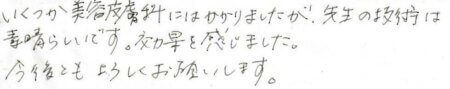 いくつか美容皮膚科にはかかりましたが、先生の技術は
素晴らしいです。効果を感じました。
今後ともよろしくお願いします。